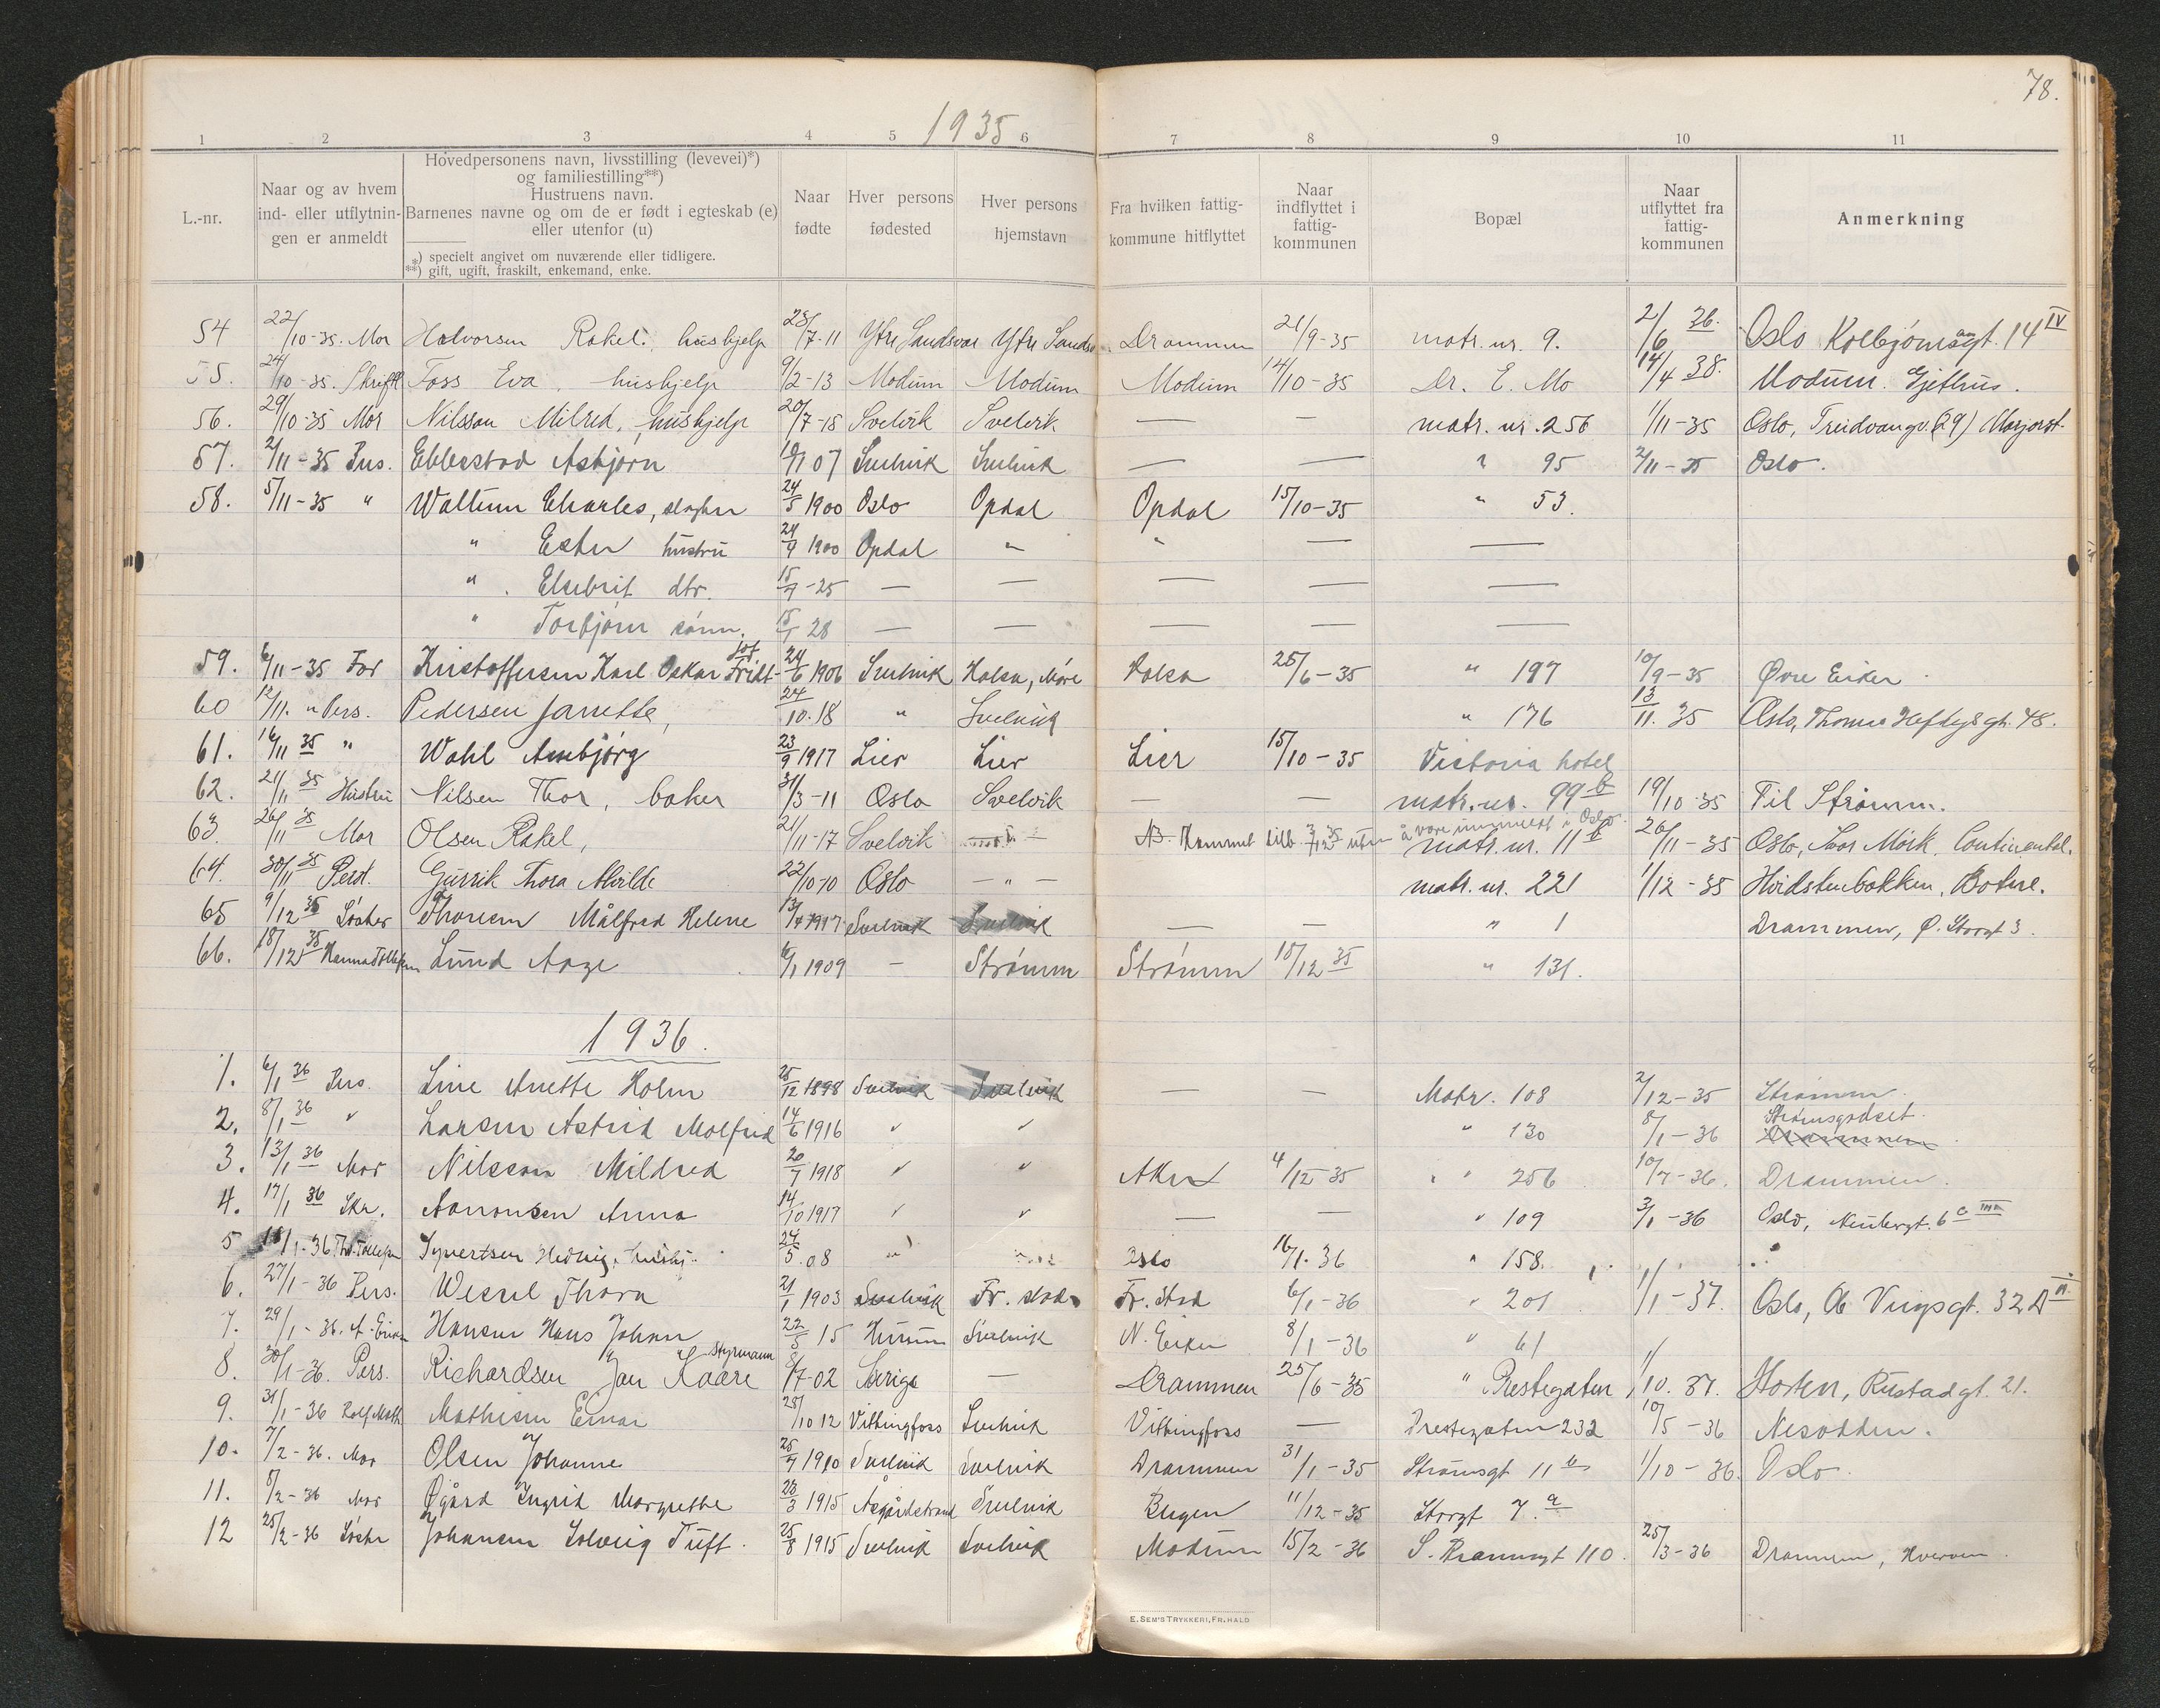 78.
1935
1 2 3 4 5 6 7 8 9 10 11
L.-nr.
Naar og av hvem
ind- eller utflytnin-
gen er anmeldt
Hovedpersonens navn, livsstilling (levevei)*)
og familiestilling**)
Hustruens navn.
Barnenes navne og om de er født i egteskab (e)
eller utenfor (u)
*) specielt angivet om nuværende eller tidligere.
**) gift, ugift, fraskilt, enkemand, enke.
Naar
fødte
Hver persons
fødested
Hver persons
hjemstavn
Fra hvilken fattig-
kommune hitflyttet
Naar
indflyttet i
fattig-
kommunen
Bopæl
Naar
utflyttet fra
fattig-
kommunen
Anmerkning
54 22/10-35. Mor Halvorsen Rakel. hushjelp 23/7-11 Ytre Sandsvær Ytre Sandsv. Drammen 21/9-35 matr. nr. 9. 2/6 36. Oslo 14 IV
55. 24/10-35. Skriftl Foss Eva. hushjelp 9/2-13 Modum Modum Modum 14/10-35 Dr. E. Mo 14/4 38. Modum. Gjethus.
56. 29/10-35 Mor Nilsson Milred, hushjelp 20/7-18 Svelvik Svelvik — — matr. nr. 256 1/11-35 Oslo, (29) Majorst.
57. 2/11-35 Pers. Ebbestad Asbjørn 07 Svelvik Svelvik — — " 95 2/11-35 Oslo.
58. 5/11-35 " Wallum Charles, slagter 24/5 1900 Oslo Opdal Opdal 15/10-35 " 53.
" Ester hustru 24/9 1900 Opdal " " — —
" Elsebrit dtr. 15/7-25 — — — — —
" Torbjørn sønn. 15/1 28 — — — — —
59. 6/11-35 Far Kristoffersen Karl Oskar Fridt- jof 24/6 1906 Svelvik Halsa, Møre Halsa 25/6-35 " 197 10/9-35 Øvre Eiker
60 12/11. " Pers. Pedersen Janette, 24/10.18 " Svelvik " 176 13/11. 35 Oslo, Thomas Heftyes gt. 48.
61. 16/11 35 " Wahl Annbjørg 23/9 1917 Lier Lier Lier 15/10-35 Victoria hotel
62. 21/11 35 Hustru Nilsen Thor, baker 31/3-11 Oslo Svelvik — — matr. nr. 99 b 19/10-35 Til Strømm.
63. 26/11 35 Mor Olsen Rakel, 21/11-17 Svelvik — " — NB. Kommet tilb. 3/12 35 uten å være innmeldt i Oslo. matr. nr. 11 b 26/11-35 Oslo, Mørk, Continental.
64. 30/11 35 Gurrik Thora Alvilde 22/10-10 Oslo — " — matr. nr. 221 1/12-35 Hvidstenbakken, Botne.
65 9/12 35 Søster Thoresen Målfred Helene 13/4 1917 Svelvik Svelvik — — " 1 Drammen, Ø. Storgt 3.
66. 18/12 35 Hanna Tollefsen Lund Aage 6/1 1909 — Strømm Strømm 18/12 35 " 131.
1936.
1. 6/1 36 Pers. Line Anette Holm 25/12 1898 Svelvik Svelvik — — Matr. 108 2/12-35 Strømm
2. 8/1 36 " Larsen Astrid Molfrid 14/6 1916 " " " 130 8/1-36 Strømsgodset.
3. 13/1 36 Mor Nilsson Mildred 20/7 1918 " " Aker 4/12-35 " 256 10/7-36. Drammen.
4. 17/1 36 Skr. Aaronsen Anna 14/10 1917 " " — — " 109 3/1-36 Oslo, Neubergt. 6 c III
5 18/1-36 Th. Tollefsen Syvertsen Hedvig, hushj. 24/5.08 " " Oslo 16/1.36 " 158.
6. 27/1-36 Pers. Wessel Thora 21/1 1903 Svelvik Fr. stad Fr. stad 6/1-36 " 201 1/1-37. Oslo, Ob Vigsgt. 32 A III.
7. 29/1-36. Hansen Hans Johan 22/5 15 Hurum Svelvik N. Eiker 8/1-36 " 61
8. 30/1-36. Pers. Richardsen Jan Kaare styrmann 8/7-02 Sverige — Drammen 25/6-35 " Prestegaten 1/10. 37. Horten, Rustadgt. 21.
9. 31/1-36 Rolf Math Mathisen Einar 25/10 12 Vittingfoss Svelvik Vittingfoss — Prestegaten 232 10/5-36 Nesodden.
10. 7/2-36. Mor Olsen Johanne 25/7 1910 Svelvik Svelvik Drammen 31/1-35 Strømsgt 11 b 1/10-36. Oslo.
11. 8/2-36 Mor Øgård Ingrid Margrethe 23/3 1915 Aasgårdstrand Svelvik Bergen 11/12-35 Storgt 7. a
12 25/2-36 Søster Johansen Solveig Tuft. 25/8 1915 Svelvik Svelvik Modum 15/2-36 S. 110. 25/3-36 Drammen,
E. SEM'S TRYKKERI, FR.HALD